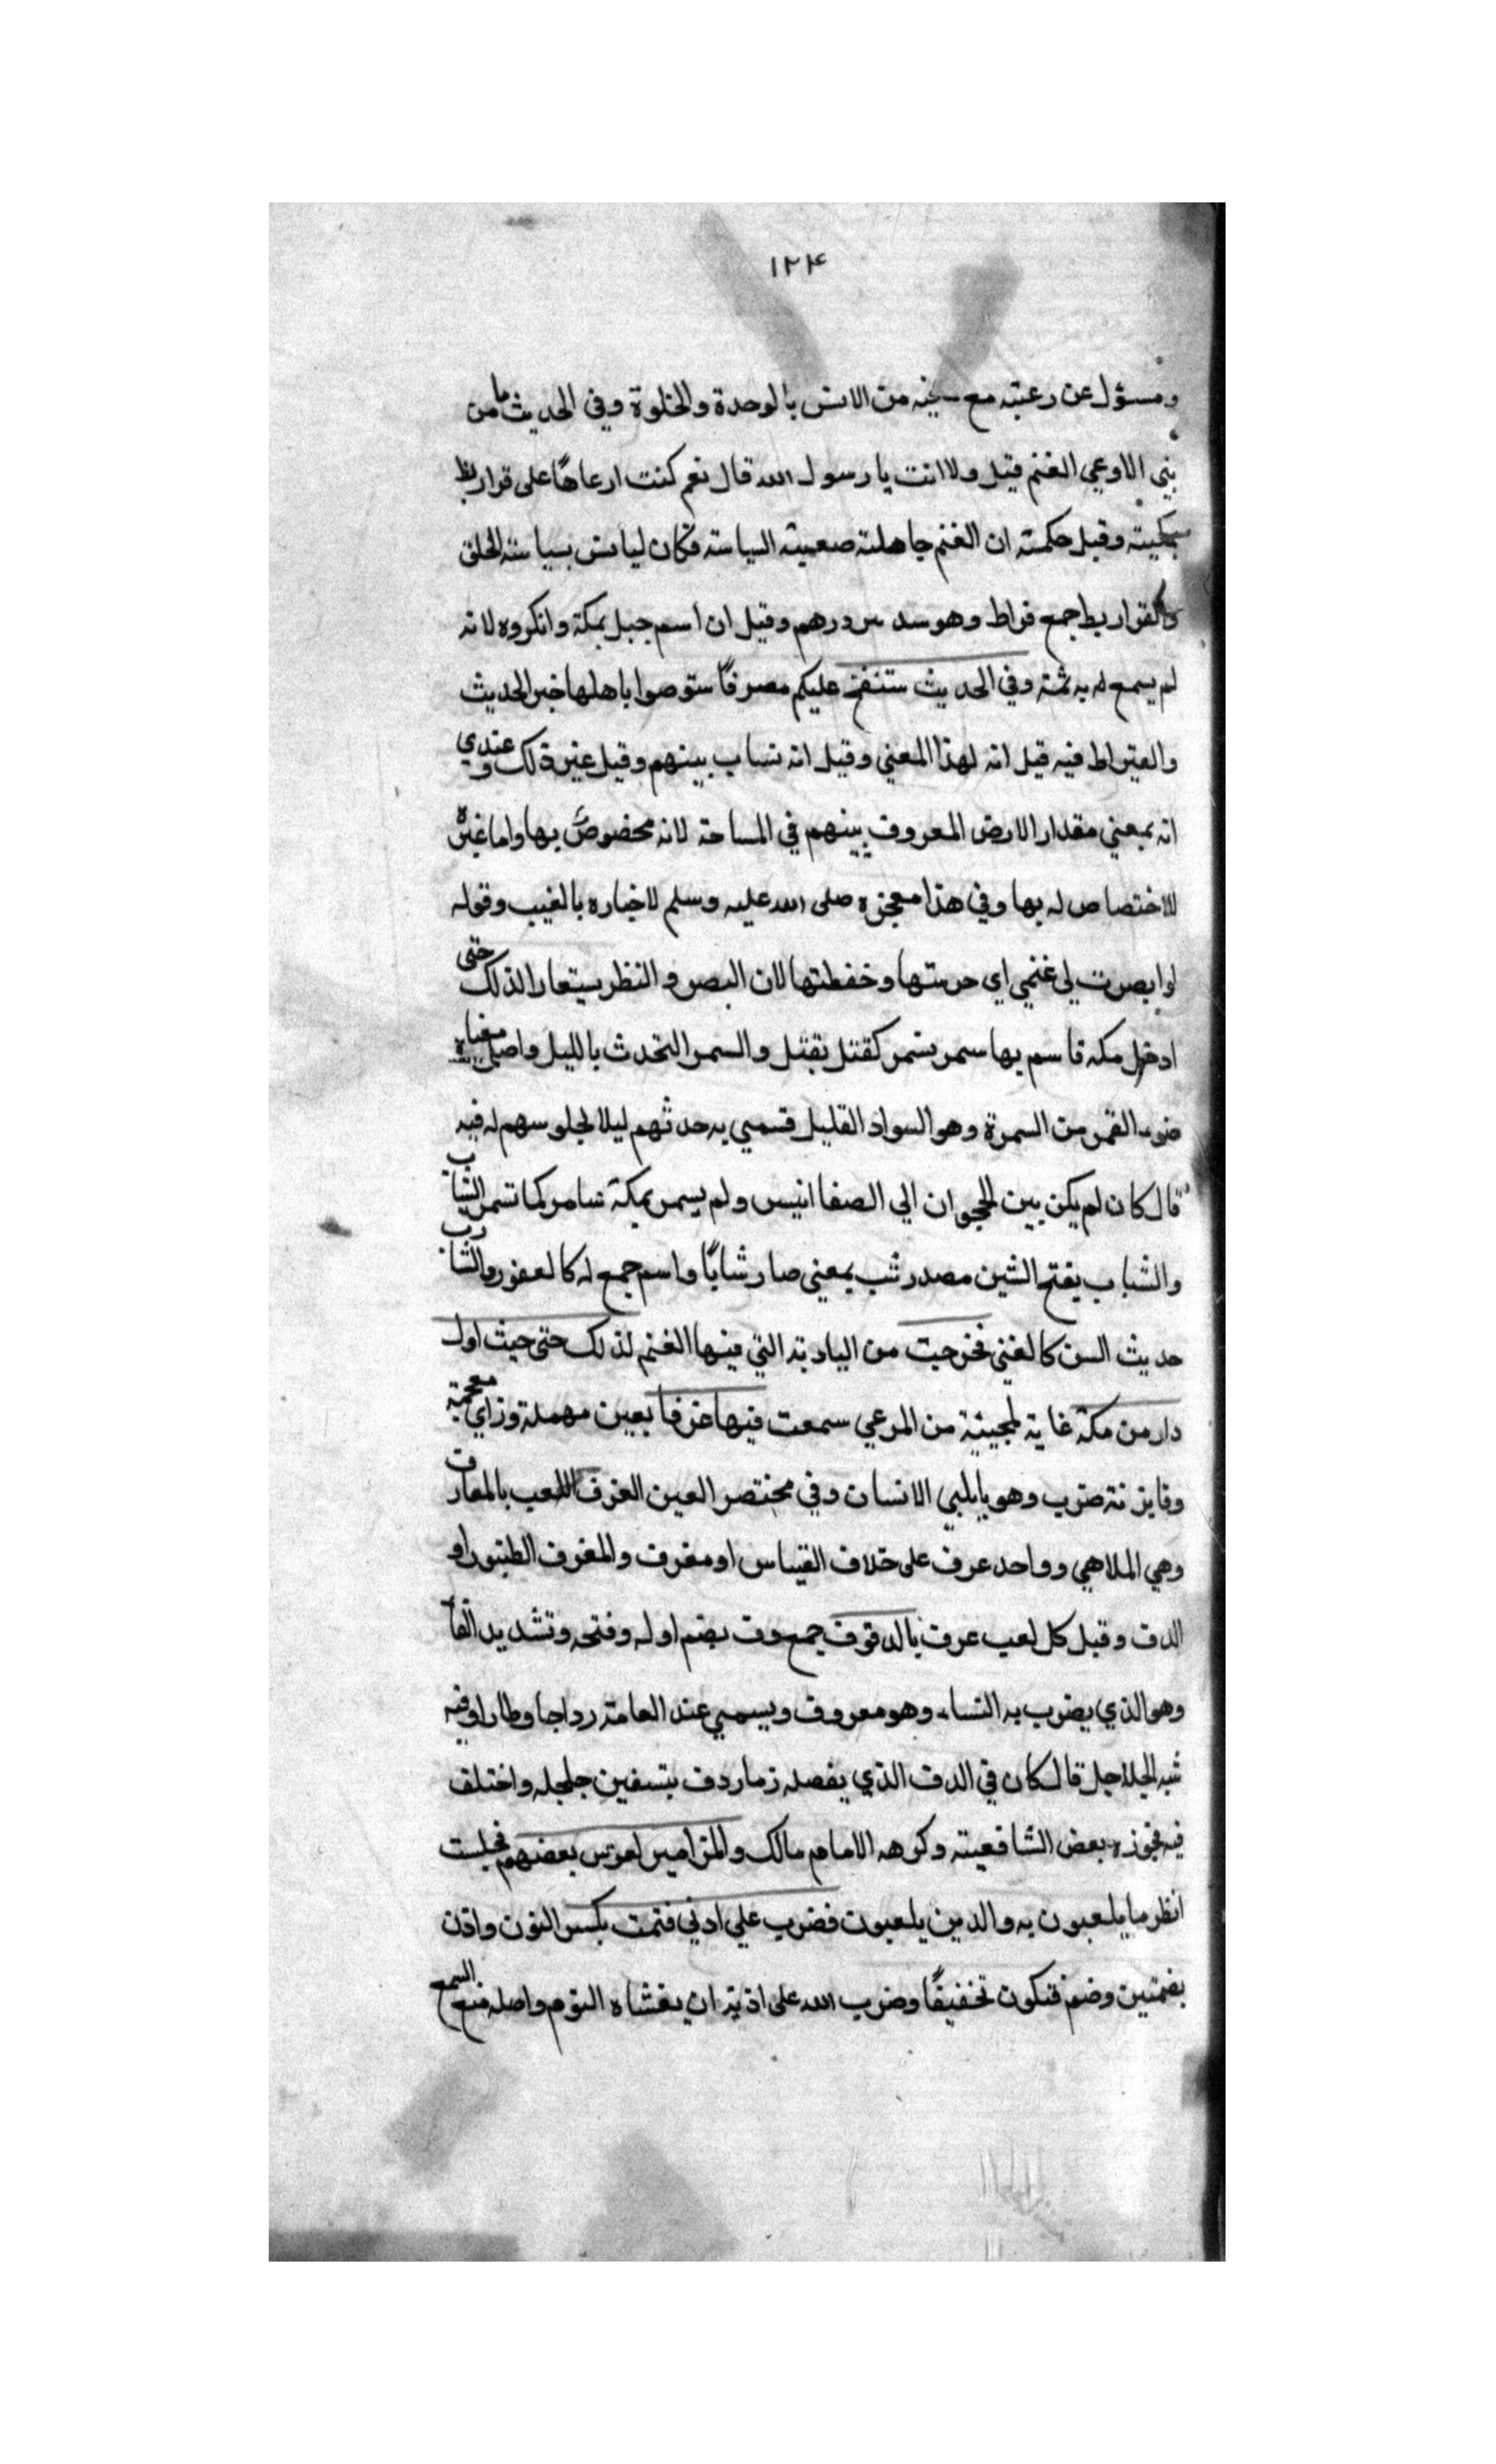 ١٢٤
ومسؤل عن رعيته مع سجيه من الانس بالوحدة والخلوة وفي الحديث ما من
نبي الا وعي الغنم قيل ولا انت يا رسول الله قال نعم كنت ارعاها على قراريط
وقيل حكمته ان الغنم جاهلة صعبة السياسة فكان ليانس بسياسة الخلق
والقراريط جمع قراط وهو سدس درهم وقيل ان اسم جبل بمكة وانكروه لانه
لم يسمع له به ثمة وفي الحديث ستفتح عليكم مصر فاستوصوا باهلها خير الحديث
والقيراط فيه قيل انه لهذا المعني وقيل انه نساب بينهم وقيل غير ذلك وعندي
انه بمعني مقدار الارض المعروف بينهم في المساحة لانه مخصوص بها واما غيره
للاختصاص له بها وفي هذا معجزه صلى الله عليه وسلم لاخباره بالغيب وقوله
لو ابصرت لي غنمي اي حرستها وحفظتها لان البصر والنظر يستعار لذلك حتى
ادخل مكه فاسمر بها سمر يسمر كقتل يقتل والسمر التحدث بالليل واصل معناه
ضوء القمر من السمرة وهو السواد القليل فسمي به حدثهم ليلا لجلوسهم له فيه
قال كان لم يكن بين الحجوان الي الصفا انيس ولم يسمر بمكة سامر كما تسمر الشباب
والشباب بفتح الشين مصدر شب بمعني صار شابا واسم جمع له كالعفور والشاب
حديث السن كالفتي فخرجت من البادية التي فيها الغنم لذلك حتى حيث اول
دار من مكة غاية لمجيئه من المرعي سمعت فيها عزفا بعين مهملة وزاي معجمة
وفا بزنة ضرب وهو يا يلهي الانسان وفي مختصر العين العزف اللعب بالمعازف
وهي الملاهي وواحد عرف على خلاف القياس او معزف والمعزف الطنبور او
الدف وقيل كل لعب عرف بالدفوف جمع دف بضم اوله وفتحه وتشديد الفا
وهو الذي يضرب به النساء وهو معروف ويسمي عند العامة رداجا وطارا وفيه
شبه الجلاجل قال كان في الدف الذي يفصله زمار دف بتسفين جلجله واختلف
فيه فجوزه بعض الشافعية وكرهه الامام مالك والمزامير لعرس بعضهم فجلست
انظر ما يلعبون به والدين يلعبون فضرب علي اذني فنمت بكسر النون واذن
بضمتين وضم فسكون تخفيفا وضرب الله على اذنيه ان يغشاه النوم واصله منع السمع